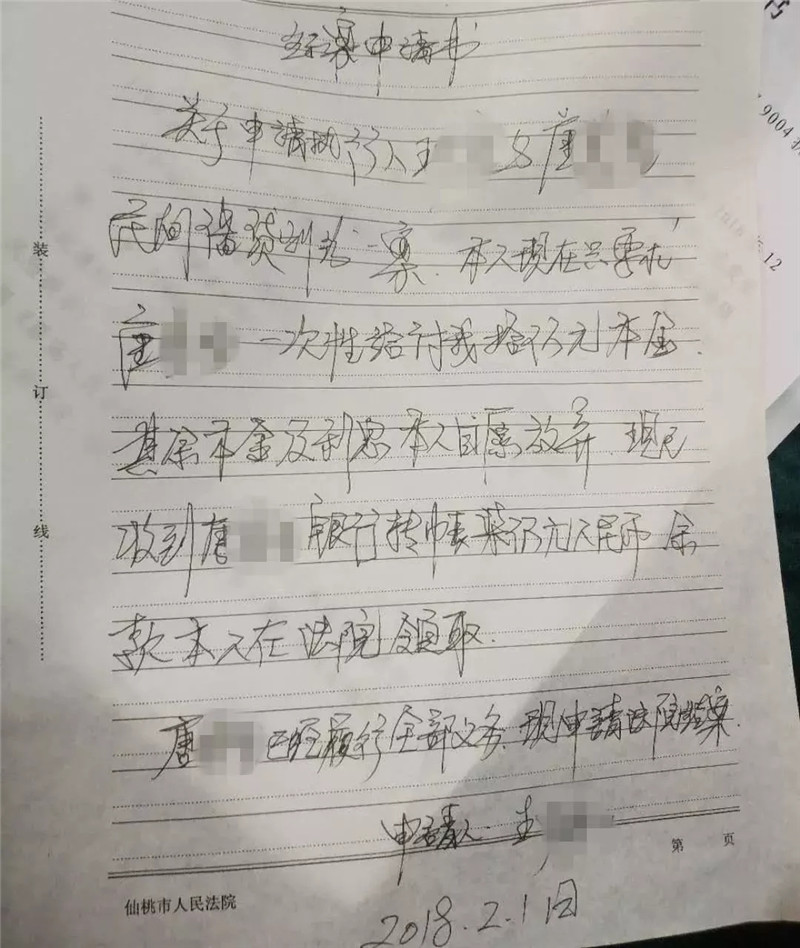 结案申请书
关于申请执行人王 与唐
民间借贷纠纷一案、本人现在只要求
唐 一次性给付我拾万元本金、
其余本金及利息本人自愿放弃、现已
收到唐 银行转帐柒万元人民币 余
款本人在法院领取.
唐 已经履行全部义务、现申请该院结案.
申请人: 王
2018.2.1日
仙桃市人民法院
第 页
装
订
线
9004
12